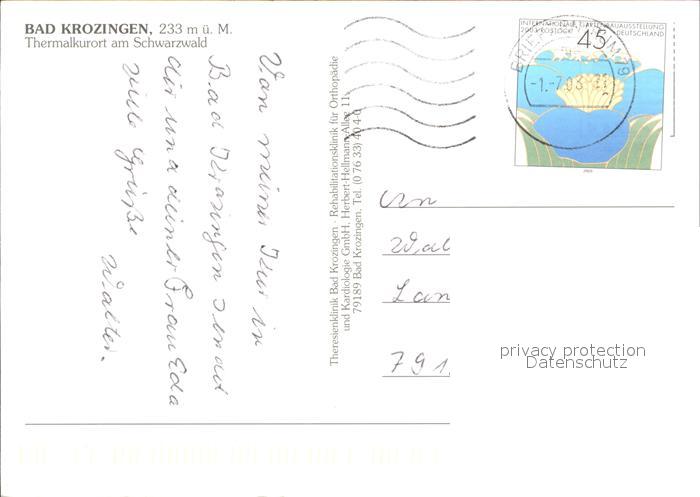 BAD KROZINGEN, 233 m ü. M.
Thermalkurort am Schwarzwald
Von meiner Kur in
Bad Krozingen sendet
dir und deiner Frau Eda
viele Grüße
Walter.
Theresienklinik Bad Krozingen · Rehabilitationsklinik für Orthopädie
und Kardiologie GmbH, Herbert-Hellmann-Allee 11,
79189 Bad Krozingen, Tel. (0 76 33) 40 4-0
INTERNATIONALE GARTENBAUAUSSTELLUNG
2003 ROSTOCK
DEUTSCHLAND
45
-1.-7.03
2003
An
Wal
Lan
791
privacy protection
Datenschutz